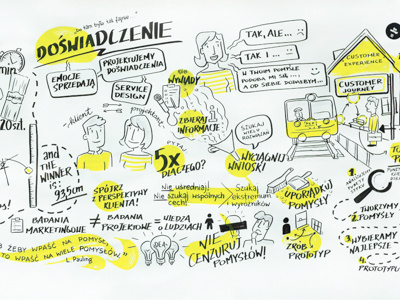 DOŚWIADCZENIE
min
20zł.
EMOCJE
SPRZEDAJĄ
PROJEKTUJEMY
DOŚWIADCZENIA
SERVICE
DESIGN
klient
projektant
and
THE
WINNER
IS:
93,5cm
WYWIADY
ZBIERAJ
INFORMACJE
TAK, ALE...
TAK I ...
W TWOIM POMYŚLE
PODOBA MI SIĘ...
A OD SIEBIE DODAŁBYM...
SZUKAJ
WIELU
ROZWIĄZAŃ
WYCIĄGNIJ
WNIOSKI
5x
DLACZEGO?
CUSTOMER
EXPERIENCE
CUSTOMER
JOURNEY
SPÓJRZ
Z PERSPEKTYWY
KLIENTA!
Nie uśredniaj!
Nie szukaj wspólnych
cech!
Szukaj
ekstremum
i wyróżników
UPORZĄDKUJ
POMYSŁY
BADANIA
MARKETINGOWE
≠
BADANIA
PROJEKTOWE
=
WIEDZA
O LUDZIACH
B ŻEBY WPAŚĆ NA POMYSŁ,
TO WPAŚĆ NA WIELE POMYSŁÓW."
L. Pauling
IDEA
NIE
CENZURUJ
POMYSŁÓW!
ZRÓB
PROTOTYP
1.
2.
TWORZYMY
POMYSŁY
3.
WYBIERAMY
NAJLEPSZE
4.
PROTOTYPU